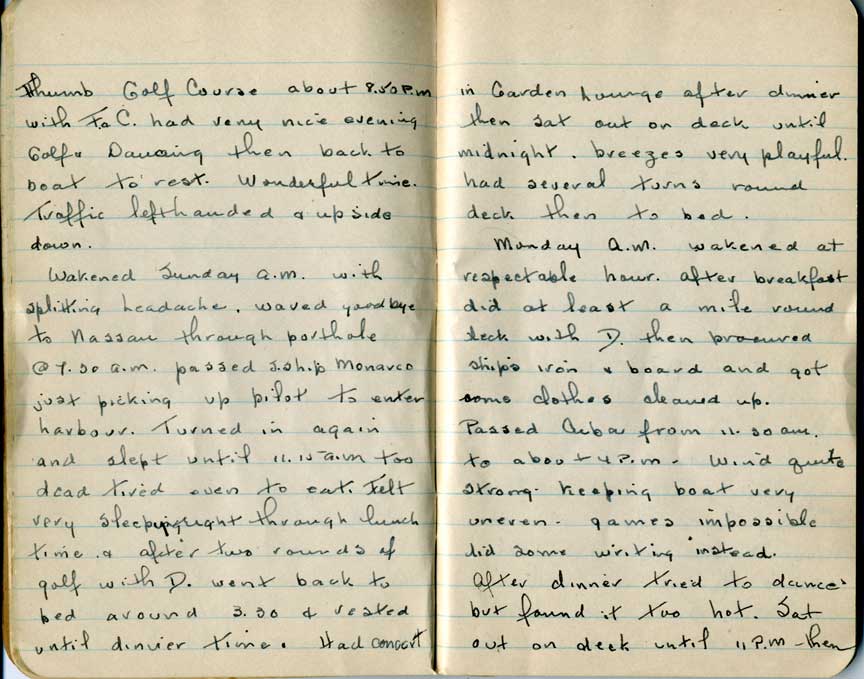 Thumb Golf Course about 8.50 P.M
with F & C. had very nice evening
Golf & Dancing then back to
boat to rest. Wonderful time.
Traffic lefthanded & upside
down.
Wakened Sunday a.m. with
splitting headache. waved goodbye
to Nassau through porthole
@ 7.30 a.m. passed S.ship Monarco
just picking up pilot to enter
harbour. Turned in again
and slept until 11.15 a.m too
dead tired even to eat. Felt
very sleepy right through lunch
time. & after two rounds of
golf with D. went back to
bed around 3.30 & rested
until dinner time. Had concert
in Garden Lounge after dinner
then sat out on deck until
midnight. breezes very playful.
had several turns round
deck then to bed.
Monday A.M. wakened at
respectable hour. after breakfast
did at least a mile round
deck with D. then procured
ships iron & board and got
some clothes cleaned up.
Passed Cuba from 11.30 am.
to about 4 P.m - Wind quite
strong. keeping boat very
uneven. games impossible
did some writing instead.
After dinner tried to dance
but found it too hot. Sat
out on deck until 11 P.M - then